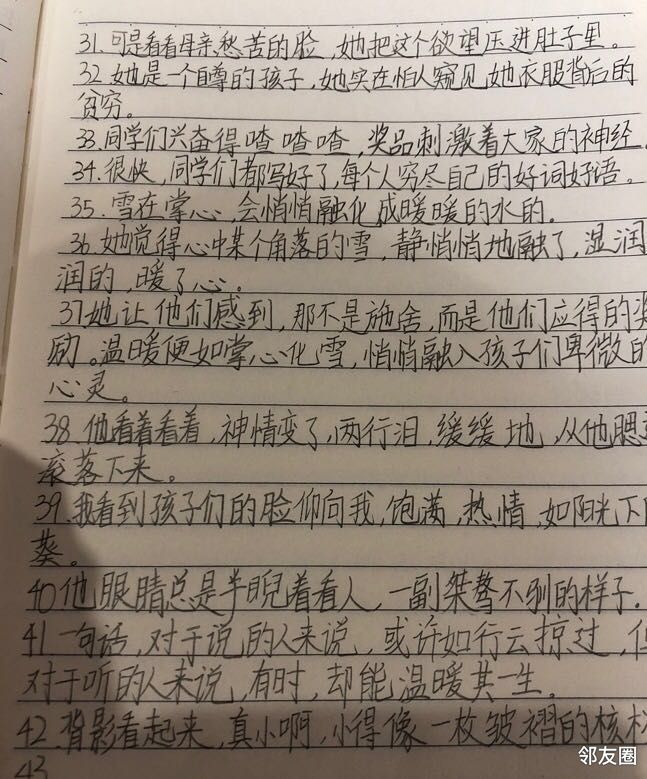 31.可是看看母亲愁苦的脸,她把这个欲望压进肚子里。
32.她是一个自尊的孩子,她实在怕人窥见她衣服背后的
贫穷。
33.同学们兴奋得喳喳喳,奖品刺激着大家的神经
34.很快,同学们都写好了,每个人穷尽自己的好词好语。
35.雪在掌心,会悄悄融化成暖暖的水的.
36.她觉得心中某个角落的雪,静悄悄地融了,湿润
润的,暖了心。
37.她让他们感到,那不是施舍,而是他们应得的奖
励。温暖便如掌心化雪,悄悄融入孩子们卑微的
心灵。
38.他看着看着,神情变了,两行泪,缓缓地,从他腮
滚落下来。
39.我看到孩子们的脸仰向我,饱满,热情,如阳光下
葵。
40他眼睛总是半睨着看人,一副桀骜不驯的样子.
41.一句话,对于说的人来说,或许如行云掠过,但
对于听的人来说,有时,却能温暖其一生.
42.背影看起来,真小啊,小得像一枚皱褶的核桃
43
邻友圈